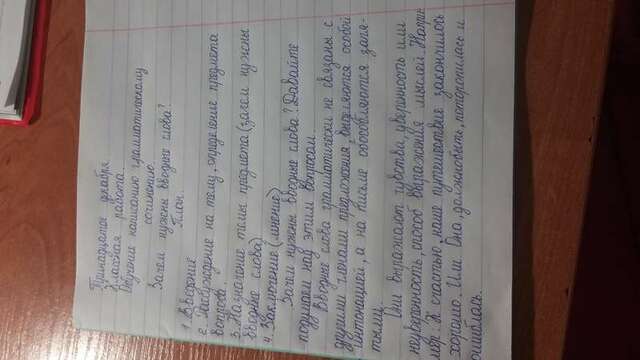 Тринадцатое декабря.
Классная работа.
Обучение написанию грамматическому
сочинению.
Зачем нужны вводные слова?
План.
1. Введение
2. Рассуждение на тему, определение предмета
вопроса.
3. Назначение темы предмета (зачем нужны
вводные слова)
4. Заключение (мнение)
Зачем нужны вводные слова? Давайте
подумаем над этим вопросом.
Вводные слова грамматически не связаны с
другими членами предложения, выделяются особой
интонацией, а на письме обособляются запя-
тыми.
Они выражают чувства, уверенность или
неуверенность, способ выражения мыслей. Напри-
мер: К счастью, наше путешествие закончилось
хорошо. Или: Она, должно быть, поторопилась и
ошиблась.